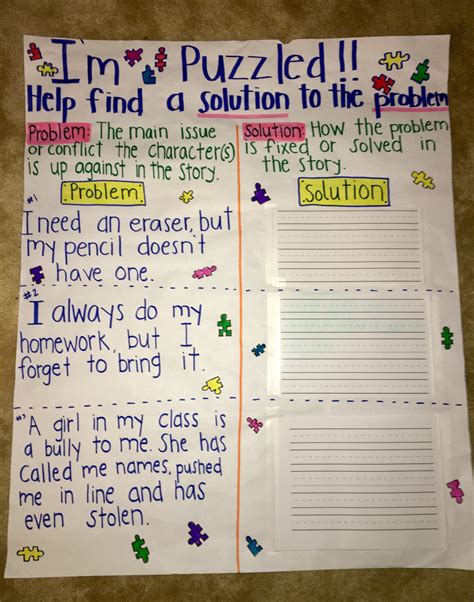 I'm Puzzled!!
Help find a solution to the problem
Problem: The main issue
or conflict the character(s)
is up against in the story.
Solution: How the problem
is fixed or solved in
the story.
Problem
Solution
#1
I need an eraser, but
my pencil doesn't
have one.
#2
I always do my
homework, but I
forget to bring it.
#3
A girl in my class is
a bully to me. She has
called me names, pushed
me in line and has
even stolen.